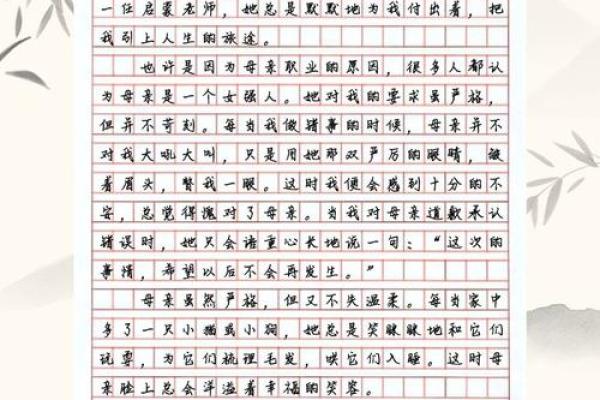 一任启蒙老师，她总是默默地为我付出着，把
我引上人生的旅途。
也许是因为母亲职业的原因，很多人都认
为母亲是一个女强人。她对我的要求虽严格，
但并不苛刻。每当我做错事的时候，母亲并不
对我大吼大叫，只是用她那双严厉的眼睛，皱
着眉头，瞥我一眼。这时我便会感到十分的不
安，总觉得愧对了母亲。当我对母亲道歉承认
错误时，她只会语重心长地说一句：“这次的
事情，希望以后不会再发生。”
母亲虽然严格，但又不失温柔。每当家中
多了一只小猫或小狗，她总是笑眯眯地和它们
玩耍，为它们梳理毛发，哄它们入睡。这时母
亲脸上总会洋溢着幸福的笑容。